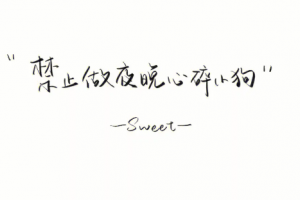 "禁止做夜晚心碎小狗"
—Sweet—